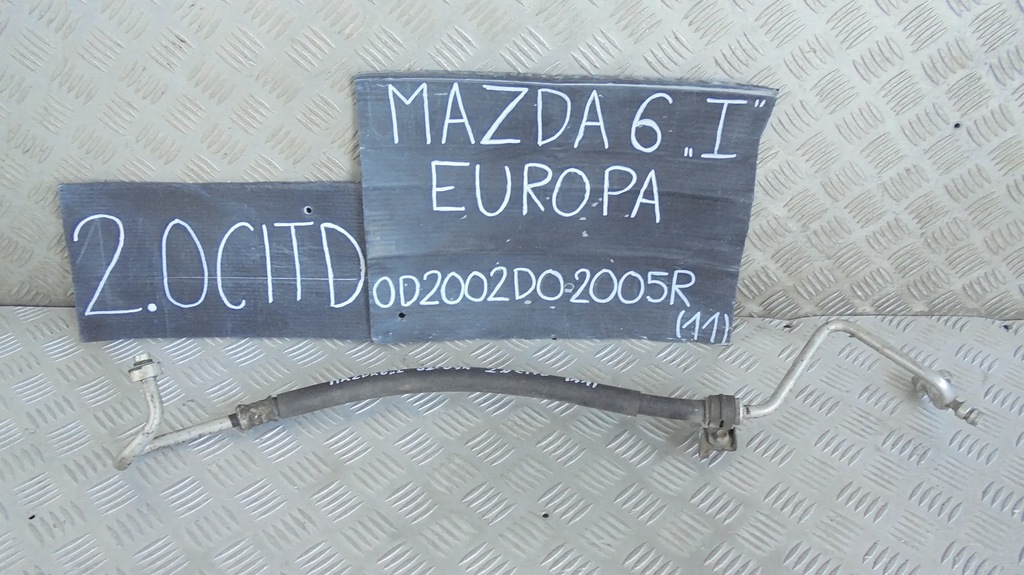 MAZDA 6 „I"
EUROPA
2.0CITD
OD2002DO-2005R
(11)